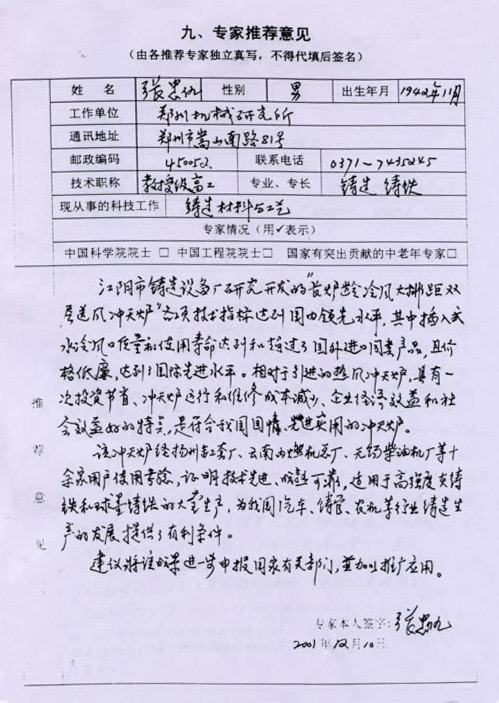 九、专家推荐意见
（由各推荐专家独立真写，不得代填后签名）
姓 名 张忠仇 性别 男 出生年月 1942年11月
工作单位 郑州机械研究所
通讯地址 郑州市嵩山南路81号
邮政编码 450052 联系电话 0371-7435245
技术职称 教授级高工 专业、专长 铸造 铸铁
现从事的科技工作 铸造材料与工艺
专家情况（用✓表示）
中国科学院院士 □ 中国工程院院士 □ 国家有突出贡献的中老年专家 □
推荐意见
江阴市铸造设备厂研究开发的“长炉龄冷风大排距双
层送风冲天炉”各项技术指标达到国内领先水平，其中插入式
水冷风口质量和使用寿命达到和超过了国外进口同类产品，且价
格低廉，达到了国际先进水平。相对于引进的热风冲天炉，具有一
次投资节省、冲天炉运行和维修成本减少、企业经济效益和社
会效益好的特点，是符合我国国情、先进实用的冲天炉。
该冲天炉经扬州缸套厂、云南内燃机总厂、无锡柴油机厂等十
余家用户使用考验，证明技术先进、成熟可靠，适用于高强度灰铸
铁和球墨铸铁的大量生产，为我国汽车、铸管、农机等行业铸造生
产的发展提供了有利条件。
建议将该成果进一步申报国家有关部门，并加以推广应用。
专家本人签字：张忠仇
2001年12月10日